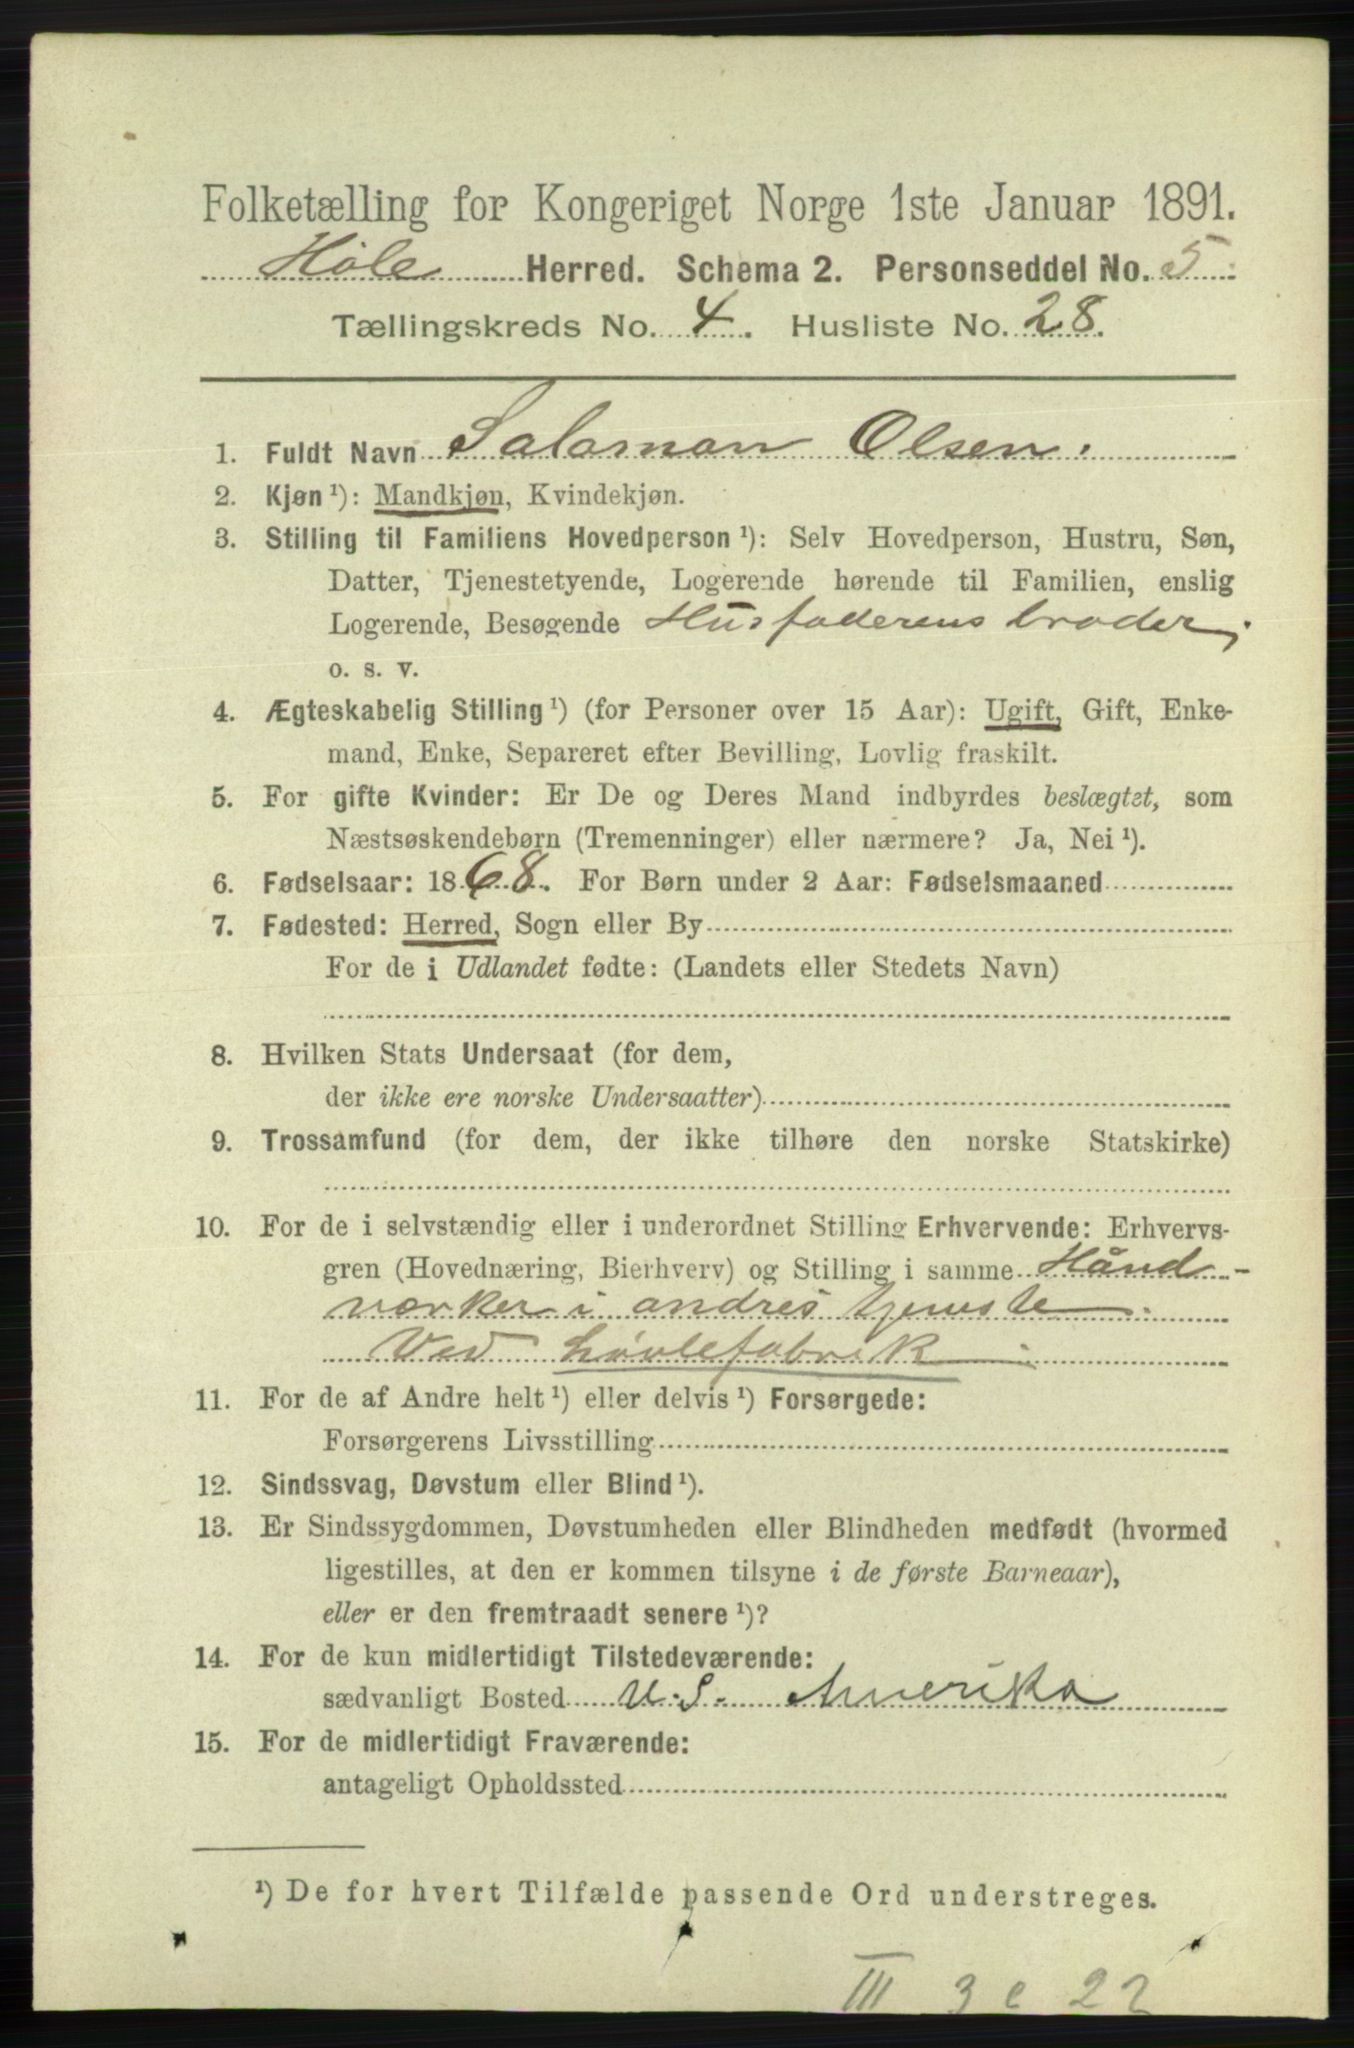 Folketælling for Kongeriget Norge 1ste Januar 1891.
Höle Herred. Schema 2. Personseddel No. 5
Tællingskreds No. 4. Husliste No. 28.
1. Fuldt Navn Salamon Olsen.
2. Kjøn ¹): Mandkjøn, Kvindekjøn.
3. Stilling til Familiens Hovedperson ¹): Selv Hovedperson, Hustru, Søn,
Datter, Tjenestetyende, Logerende hørende til Familien, enslig
Logerende, Besøgende Husfaderens broder,
o. s. v.
4. Ægteskabelig Stilling ¹) (for Personer over 15 Aar): Ugift, Gift, Enke-
mand, Enke, Separeret efter Bevilling, Lovlig fraskilt.
5. For gifte Kvinder: Er De og Deres Mand indbyrdes beslægtet, som
Næstsøskendebørn (Tremenninger) eller nærmere? Ja, Nei ¹).
6. Fødselsaar: 1868. For Børn under 2 Aar: Fødselsmaaned
7. Fødested: Herred, Sogn eller By
For de i Udlandet fødte: (Landets eller Stedets Navn)
8. Hvilken Stats Undersaat (for dem,
der ikke ere norske Undersaatter)
9. Trossamfund (for dem, der ikke tilhøre den norske Statskirke)
10. For de i selvstændig eller i underordnet Stilling Erhvervende: Erhvervs-
gren (Hovednæring, Bierhverv) og Stilling i samme Hånd-
værker i andres tjeneste
Ved hövlefabrik
11. For de af Andre helt ¹) eller delvis ¹) Forsørgede:
Forsørgerens Livsstilling
12. Sindssvag, Døvstum eller Blind ¹).
13. Er Sindssygdommen, Døvstumheden eller Blindheden medfødt (hvormed
ligestilles, at den er kommen tilsyne i de første Barneaar),
eller er den fremtraadt senere ¹)?
14. For de kun midlertidigt Tilstedeværende:
sædvanligt Bosted U. S. Amerika
15. For de midlertidigt Fraværende:
antageligt Opholdssted
¹) De for hvert Tilfælde passende Ord understreges.
III 3 e 22